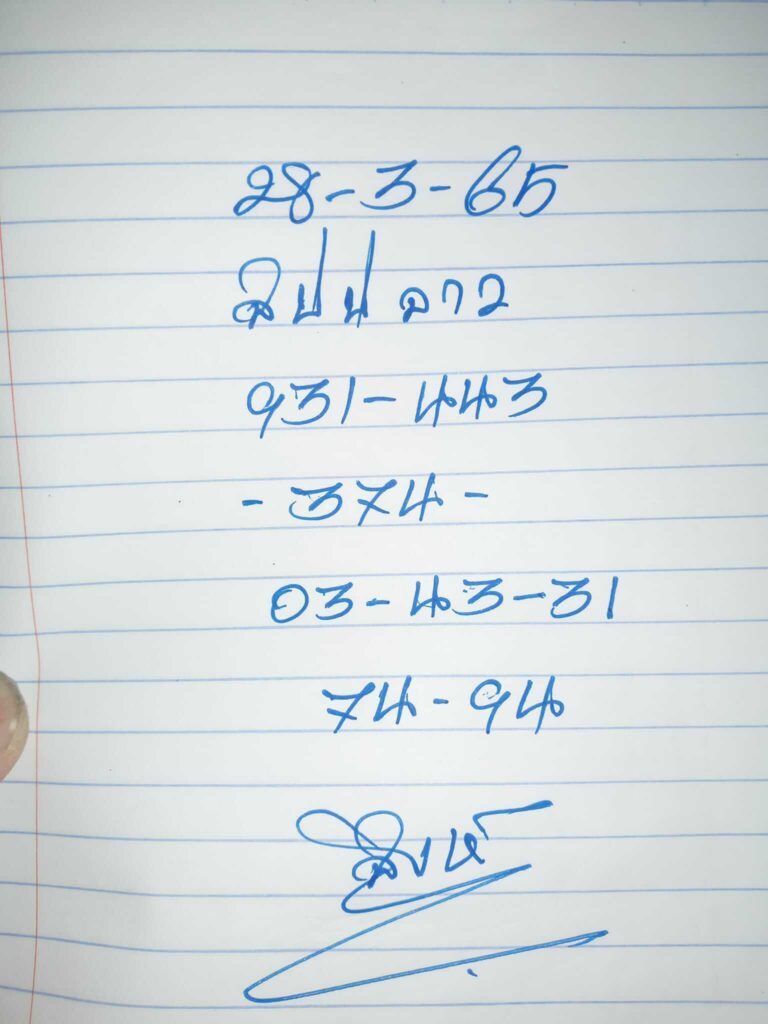 28-3-65
สปปลาว
931-443
- 374 -
03-43-31
74-94
สิงห์